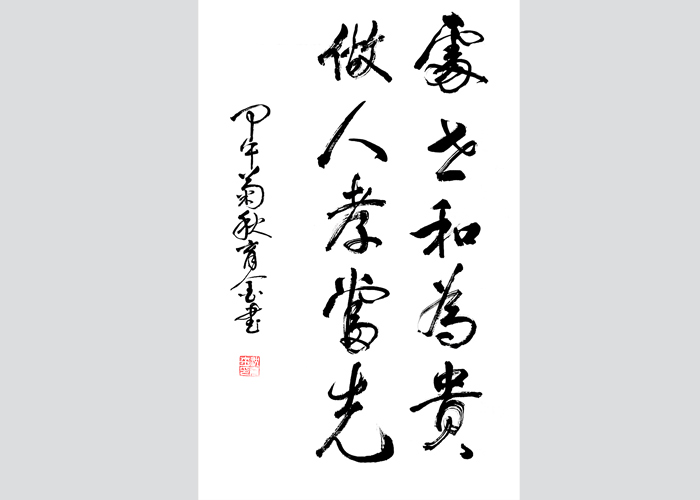 處世和為貴
做人孝當先
甲午菊秋育金書